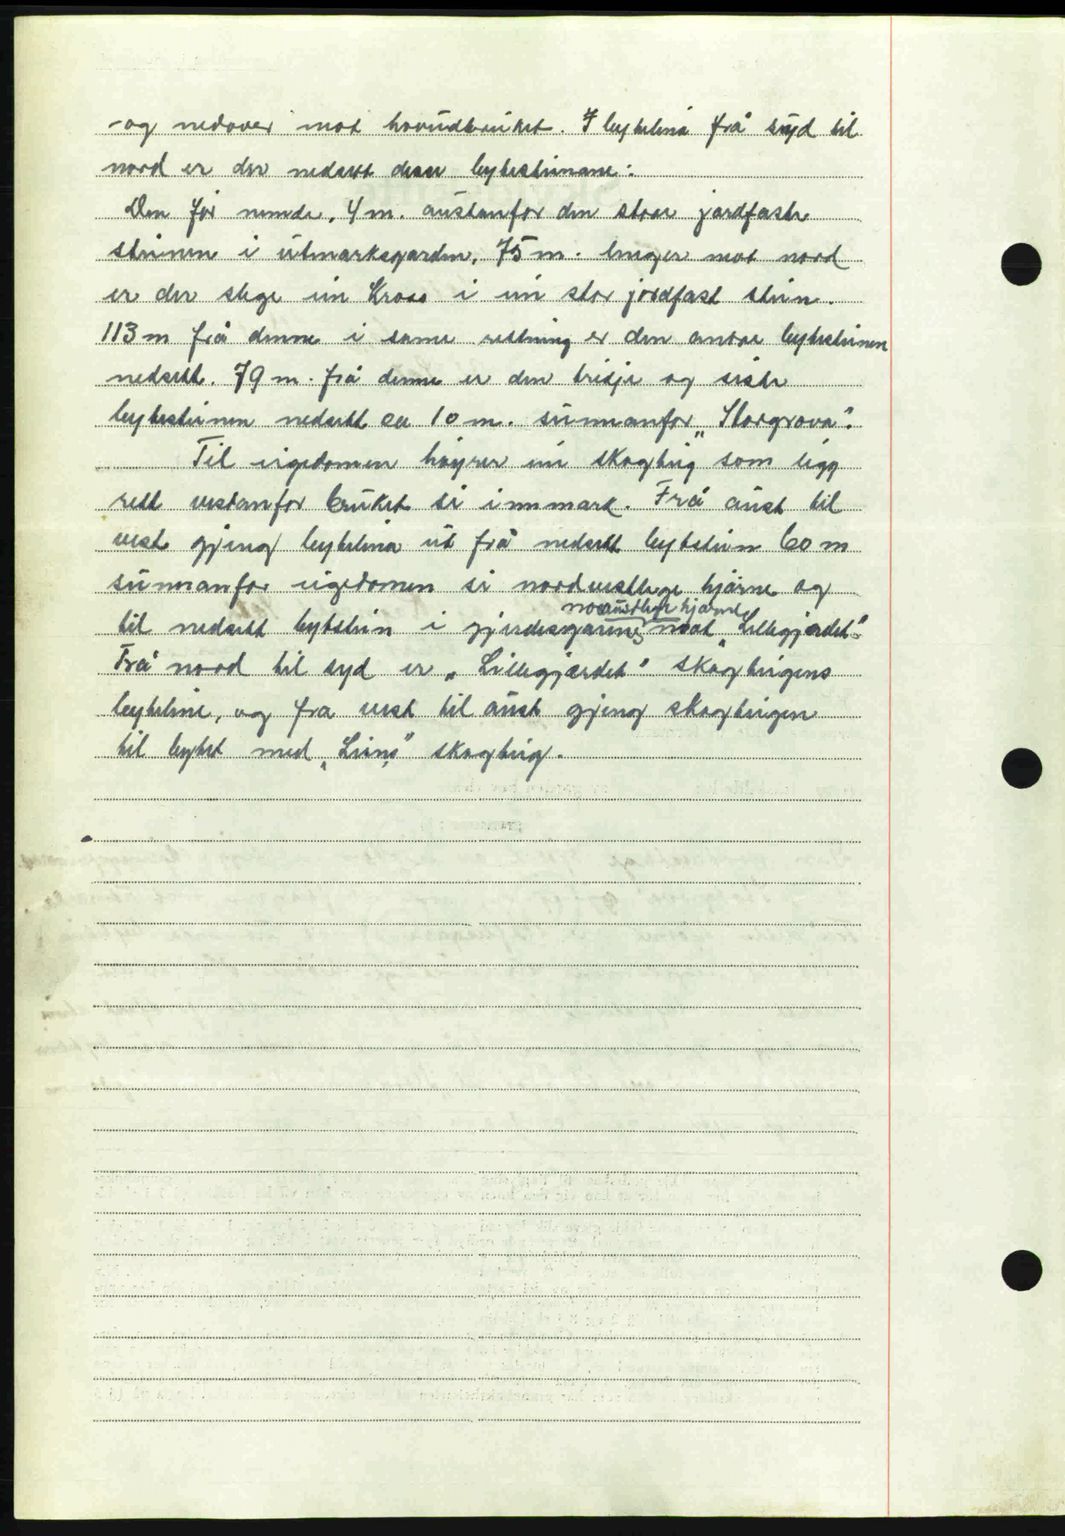 - og nedover mot hovudbruket. I byteliná frå syd til
nord er der nedsett desse bytesteinane:
Den før nemde, 4 m. austanfor den store jordfaste
steinen i utmarksgarden. 75 m. lenger mot nord
er der slege ein Kross i ein stor jordfast stein.
113 m frå denne i same retning er den andre bytesteinen
nedsett. 79 m. frå denne er den tridje og siste
bytesteinen nedsett ca 10 m. sunnanfor „Storgrova".
Til eigedomen høyrer ein skogteig som ligg
rett vestanfor bruket si innmark. Frá aust til
vest gjeng bytelina ut frå nedsett bytestein 60 m
sunnanfor eigedomen si nordvestlege hjørne og
nordaustlege hjørne
til nedsett bytestein i gjerdesgarens mot „Lillegjerdet".
Frå nord til syd er „Lillegjærdet" skogteigens
byteline, og fra vest til aust gjeng skogteigen
til bytet med „Liens" skogteig.